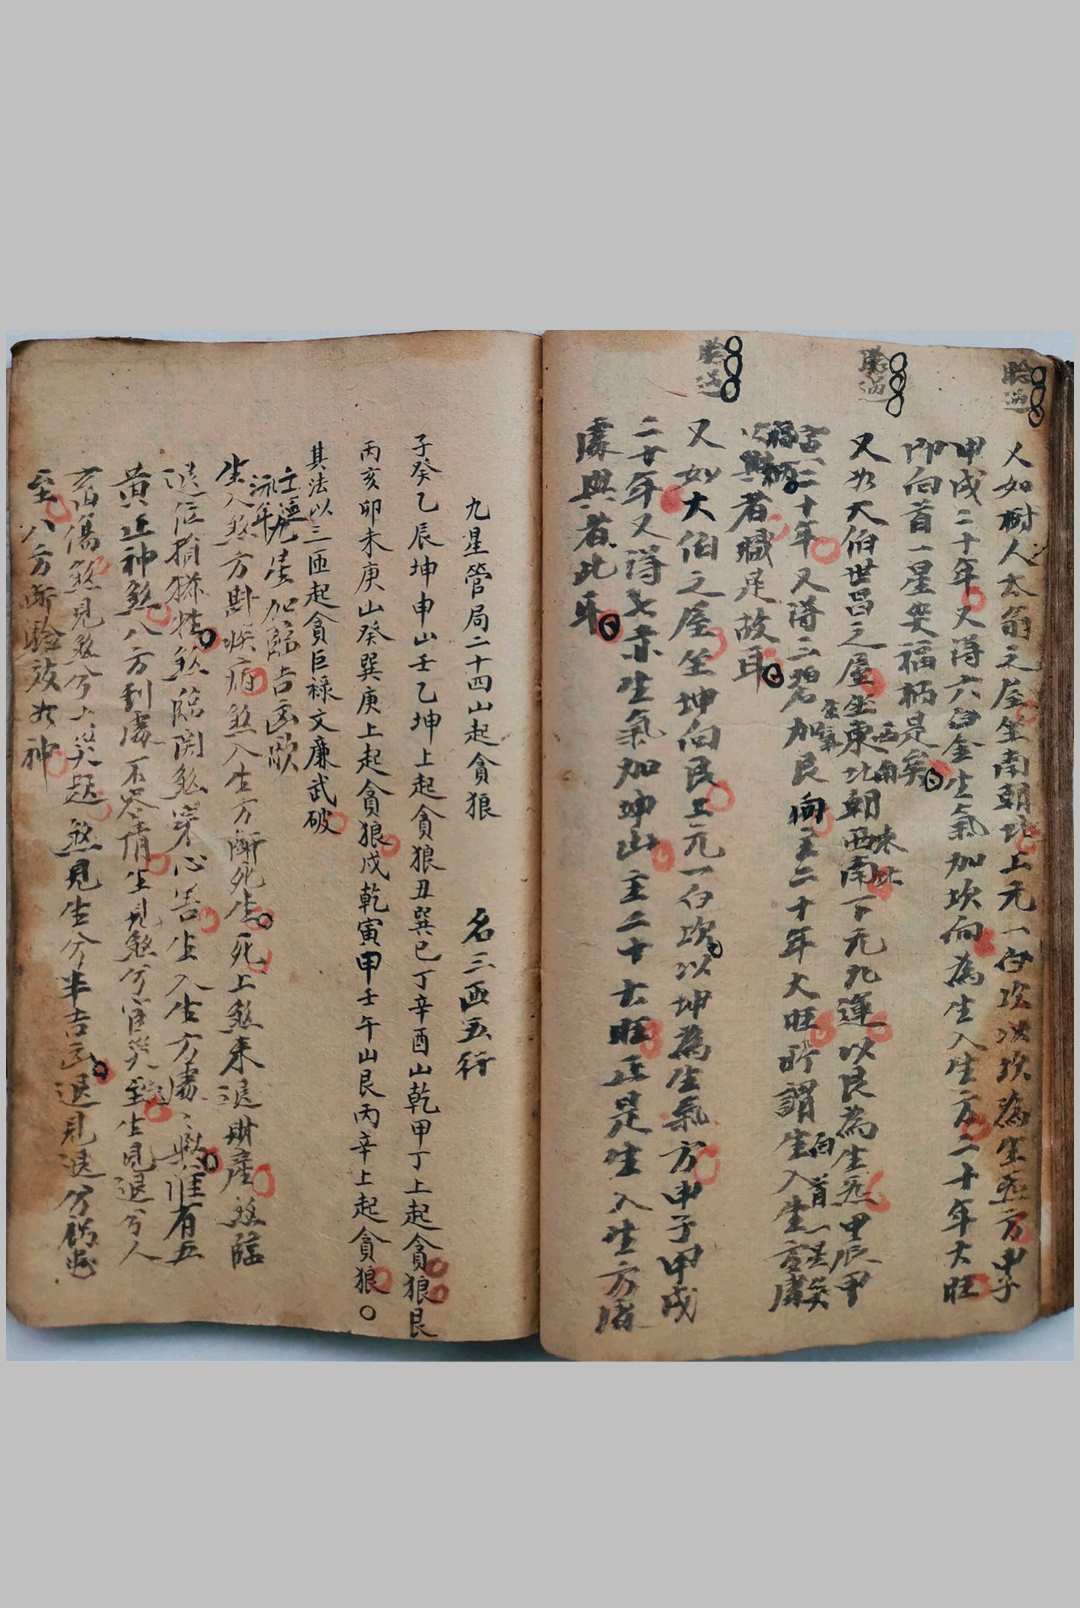 人如樹人太翁之屋坐南朝北上元一白坎以坎為生炁方甲子
甲戌二十年又得六白金生氣加坎向為生入生方二十年大旺
即向首一星災福柄是矣
又如大伯世昌之屋坐東北朝西南下元九運以艮為生炁甲辰甲
西南
東北
二十年又得三碧加艮向主二十年大旺所謂生入生方處
生氣
向首一星災
福柄
以興者職是故耳
又如大伯之屋坐坤向艮上元一白坎以坤為生氣方甲子甲戌
二十年又得七赤生氣加坤山主二十大旺正是生入生方處
處興者此耳
九星管局二十四山起貪狼 名三西五行
子癸乙辰坤申山壬乙坤上起貪狼丑巽巳丁辛酉山乾甲丁上起貪狼艮
丙亥卯未庚山癸巽庚上起貪狼戌乾寅甲壬午山艮丙辛上起貪狼
其法以三匝起貪巨祿文廉武破
流年九星加臨吉凶歌
生入煞方尌疾病煞入生方斷死生死上煞來退財產煞臨
退位損猪牲煞臨関煞家心善生入生方處處興惟有五
黃正神煞八方到處不容情生見煞兮官災至生見退兮人
口傷煞見煞兮大災起煞見生兮半吉凶退見退兮禍
至八方斷驗效如神